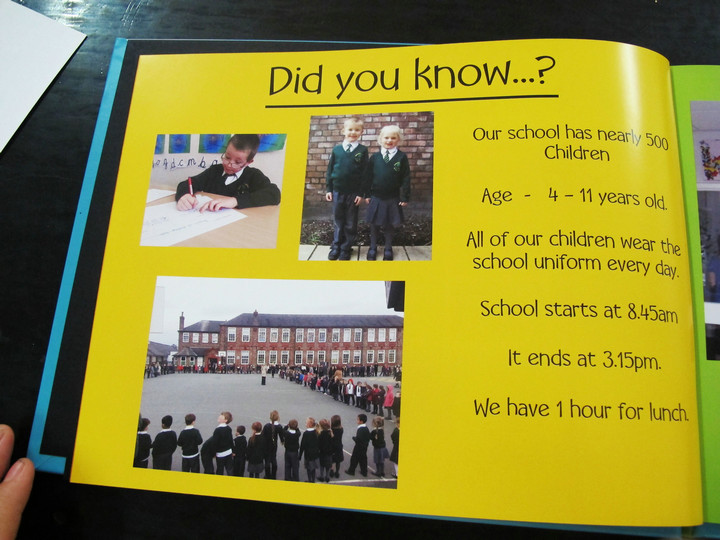 Did you know...?
Our school has nearly 500
Children
Age - 4 – 11 years old.
All of our children wear the
school uniform every day.
School starts at 8.45am
It ends at 3.15pm.
We have 1 hour for lunch.